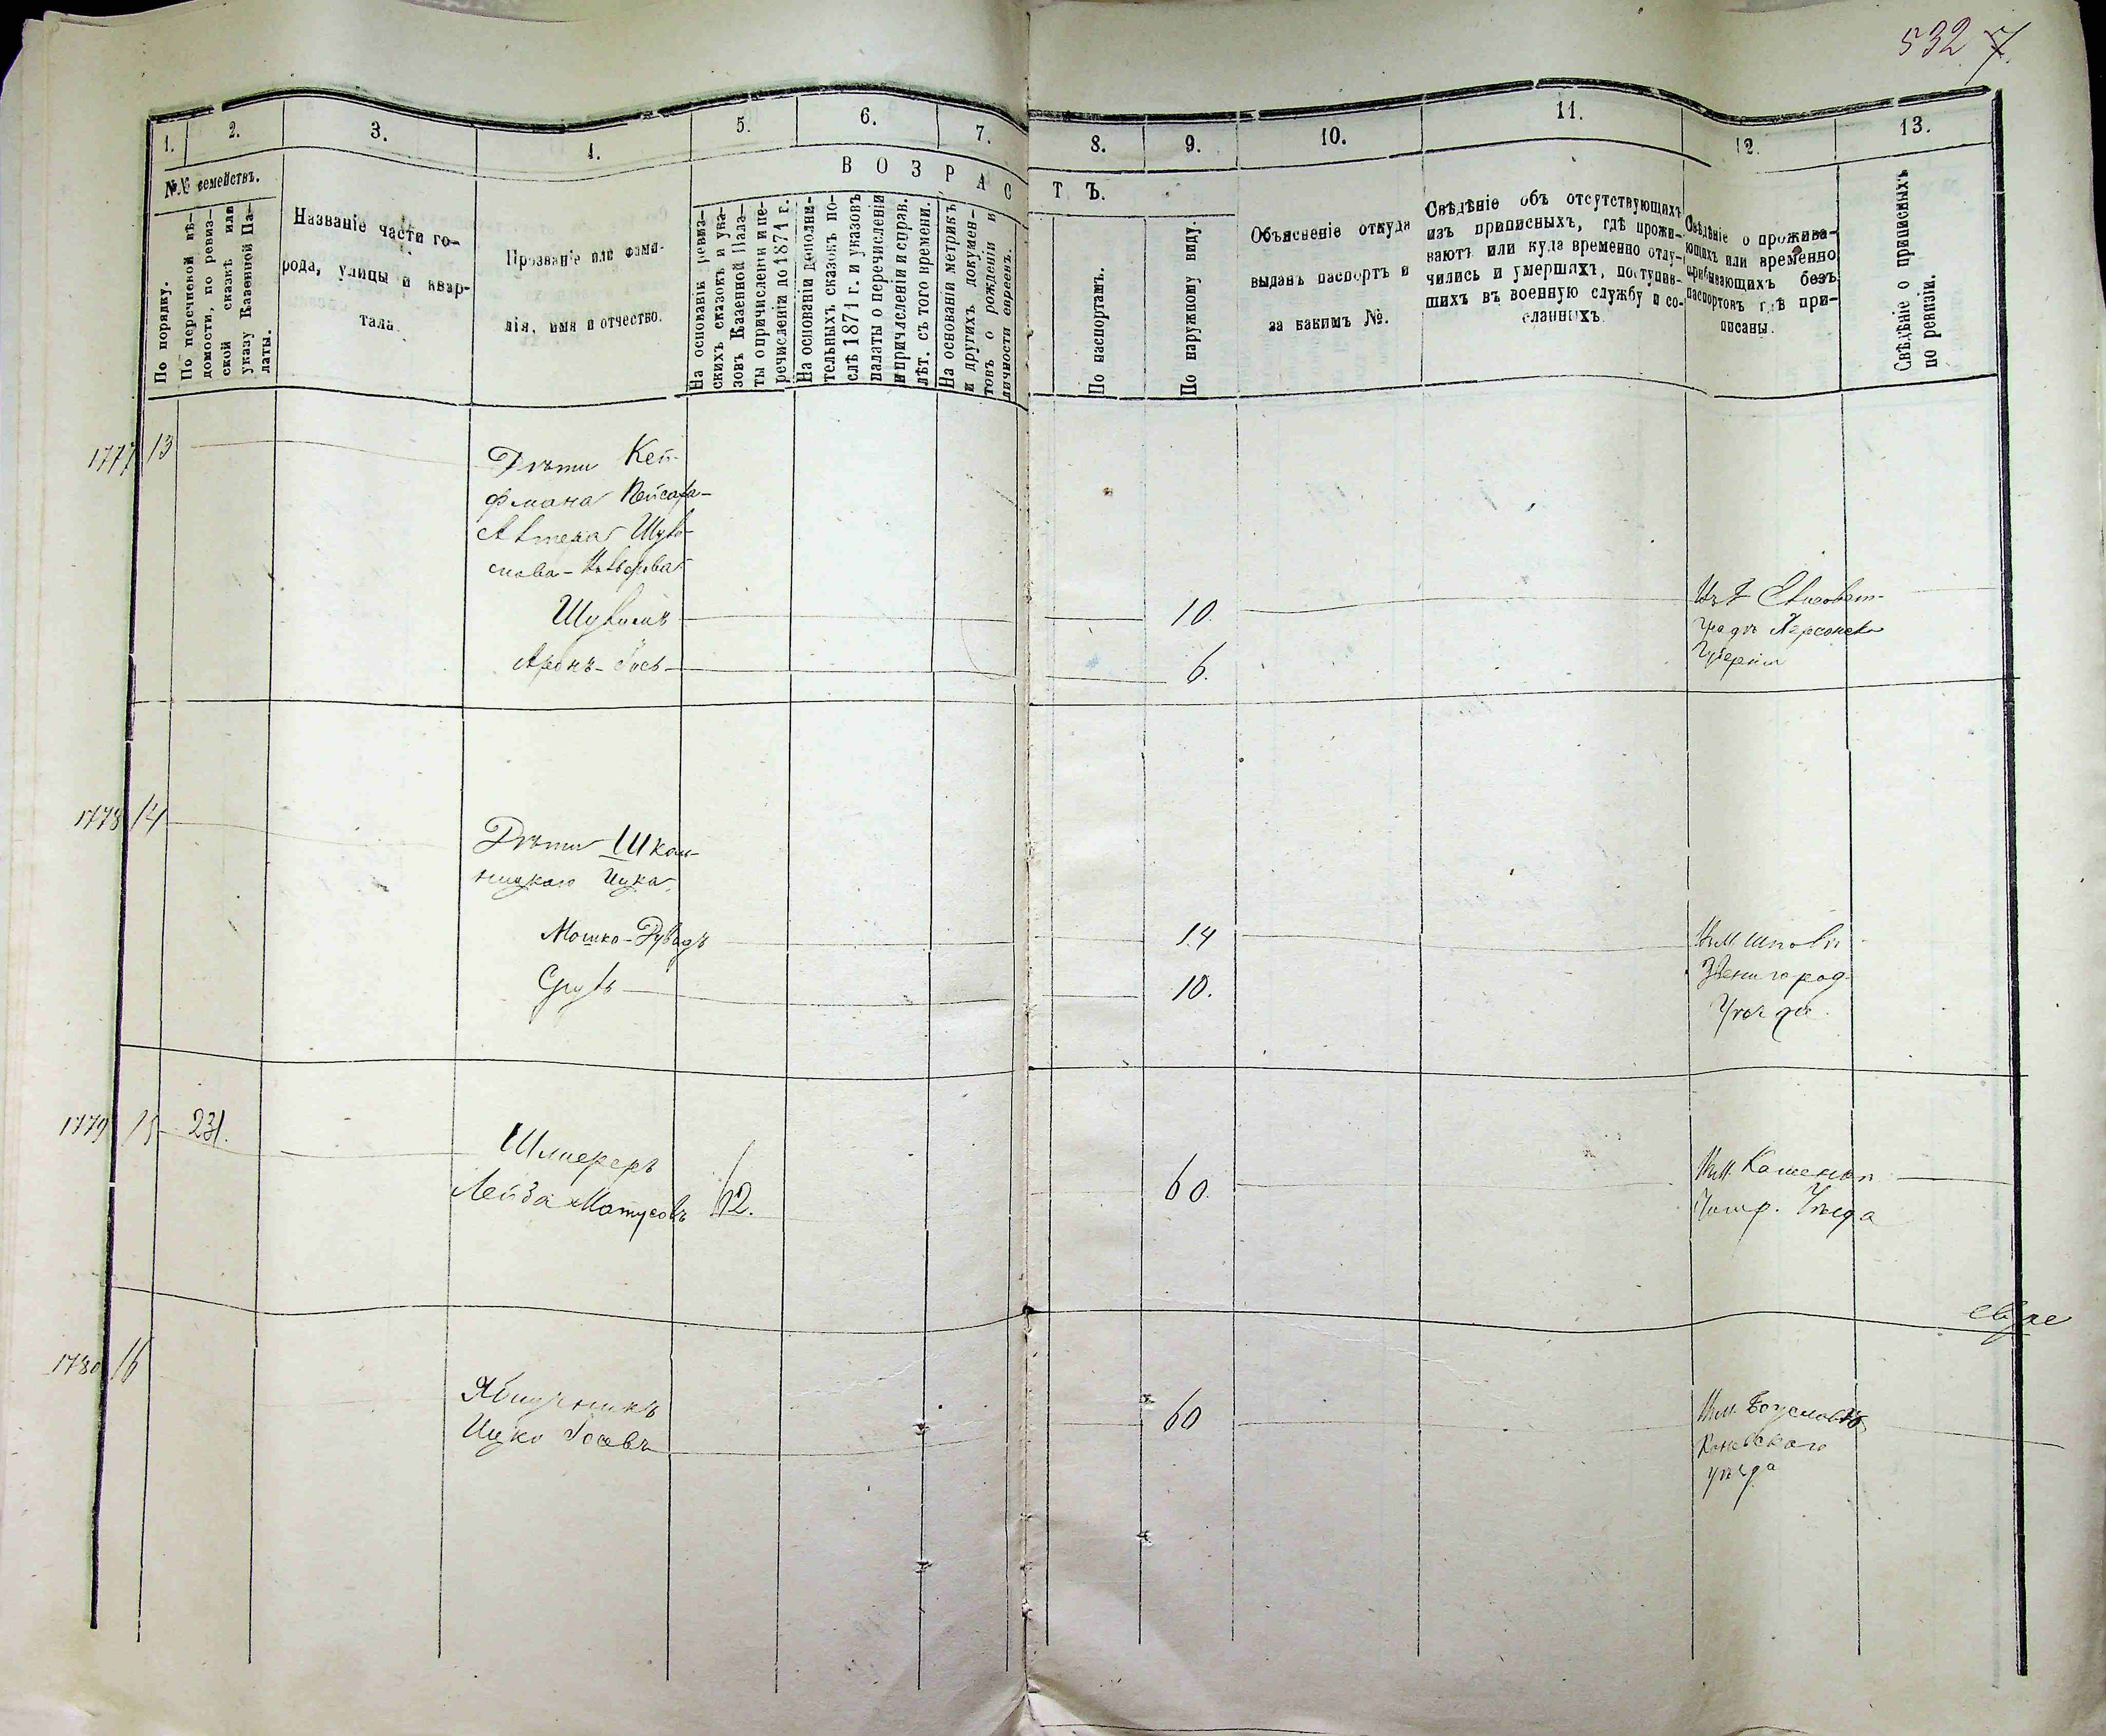 532 7.
1. 2. 3. 4. 5. 6. 7. 8. 9. 10. 11. 12. 13.
№№ семействъ.
По порядку.
По перечневой вѣ-
домости, по ревиз-
ской сказкѣ или
указу Казенной Па-
латы.
Названіе части го-
рода, улицы и квар-
тала.
Прозваніе или фами-
лія, имя и отчество.
ВОЗРАСТЪ.
На основаніи ревиз-
скихъ сказокъ и ука-
зовъ Казенной Пала-
ты о причисленіи и пе-
речисленіи до 1871 г.
На основаніи дополни-
тельныхъ сказокъ по-
слѣ 1871 г. и указовъ
палаты о перечисленіи
и причисленіи и справ.
лѣт. съ того времени.
На основаніи метрикъ
и другихъ докумен-
товъ о рожденіи и
личности евреевъ.
По паспортамъ.
По наружному виду.
Объясненіе откуда
выданъ паспортъ и
за какимъ №.
Свѣдѣніе объ отсутствующихъ
изъ приписныхъ, гдѣ прожи-
ваютъ или куда временно отлу-
чились и умершихъ, поступив-
шихъ въ военную службу и со-
сланныхъ.
Свѣдѣніе о прожива-
ющихъ или временно
прибывающихъ безъ
паспортовъ гдѣ при-
писаны.
Свѣдѣніе о приписныхъ
по ревизіи.
1777 13
Дѣти Кей-
фмана
Шулимъ 10.
Аронъ-Іось 6.
Херсонской
Губерніи
1778 14
Дѣти Шкли-
ницкаго Ицка
Мошко-Дувидъ 14
Сруль 10.
Звенигород.
Уѣзда
1779 15 231.
Шмиереръ
Лейба Матусовъ 62. 60.
Каменки
Чигир. Уѣзда
1780 16
Ицко Іосевъ 60
Богуслава
Каневскаго
уѣзда